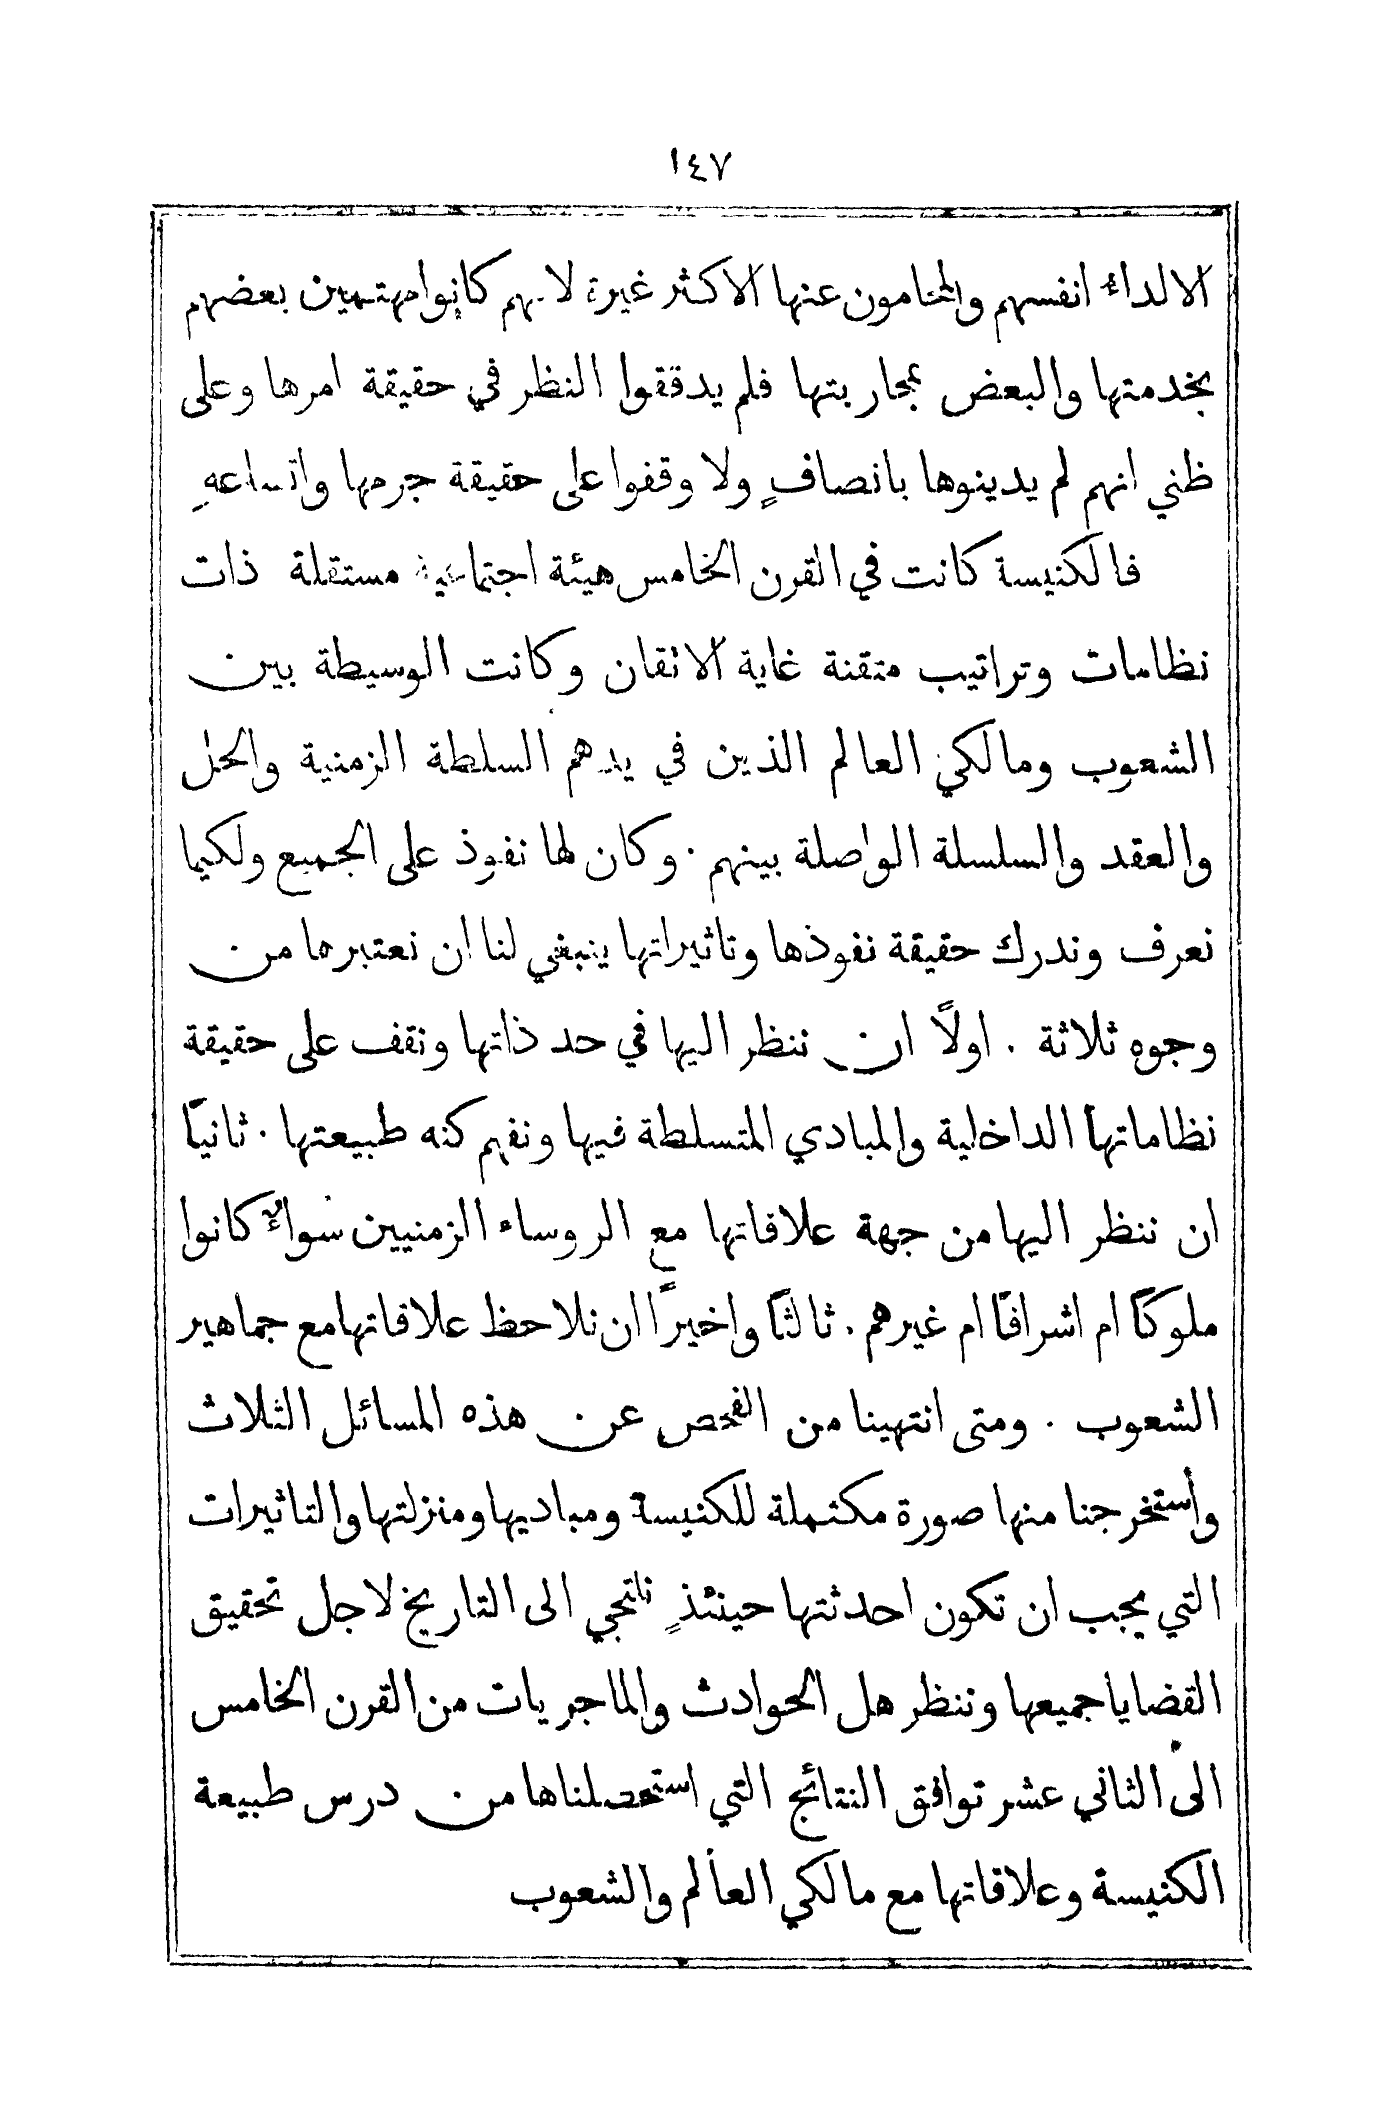 ١٤٧
الالداء انفسهم والمحامون عنها الاكثر غيرة لانهم كانوا مهتمين بعضهم
بخدمتها والبعض بمحاربتها فلم يدققوا النظر في حقيقة امرها وعلى
ظني انهم لم يدينوها بانصافٍ ولا وقفوا على حقيقة جرمها واتساعهِ
فالكنيسة كانت في القرن الخامس هيئة اجتماعية مستقلة ذات
نظامات وتراتيب متقنة غاية الاتقان وكانت الوسيطة بين
الشعوب ومالكي العالم الذين في يدهم السلطة الزمنية والحل
والعقد والسلسلة الواصلة بينهم . وكان لها نفوذ على الجميع ولكيما
نعرف وندرك حقيقة نفوذها وتاثيراتها ينبغي لنا ان نعتبرها من
وجوه ثلاثة . اولاً ان ننظر اليها في حد ذاتها ونقف على حقيقة
نظاماتها الداخلية والمبادي المتسلطة فيها ونفهم كنه طبيعتها . ثانياً
ان ننظر اليها من جهة علاقاتها مع الروساء الزمنيين سواءٌ كانوا
ملوكاً ام اشرافاً ام غيرهم . ثالثاً واخيراً ان نلاحظ علاقاتها مع جماهير
الشعوب . ومتى انتهينا من الفحص عن هذه المسائل الثلاث
وأستخرجنا منها صورة مكتملة للكنيسة ومباديها ومنزلتها والتاثيرات
التي يجب ان تكون احدثتها حينئذٍ نلتجي الى التاريخ لاجل تحقيق
القضايا جميعها وننظر هل الحوادث والماجريات من القرن الخامس
الى الثاني عشر توافق النتائج التي استحصلناها من درس طبيعة
الكنيسة وعلاقاتها مع مالكي العالم والشعوب